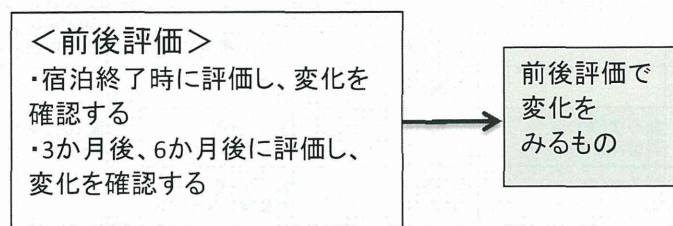 ＜前後評価＞
・宿泊終了時に評価し、変化を
確認する
・3か月後、6か月後に評価し、
変化を確認する
前後評価で
変化を
みるもの